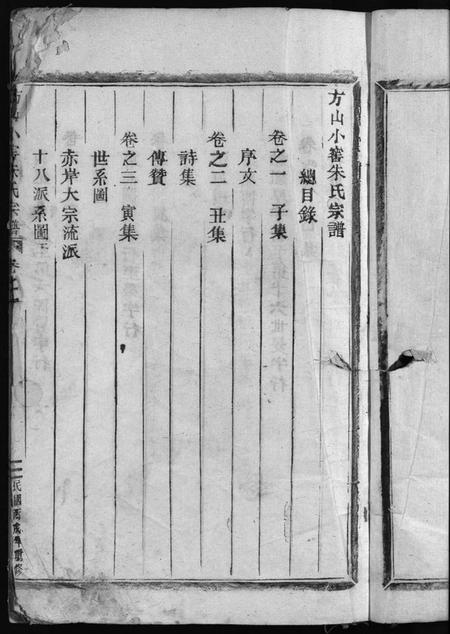 方山小窰朱氏宗譜
總目錄
卷之一 子集
序文
卷之二 丑集
詩集
傳贊
卷之三 寅集
世系圖
赤岸大宗流派
十八派系圖
方山小窰朱氏宗譜
民國丙戌年重修